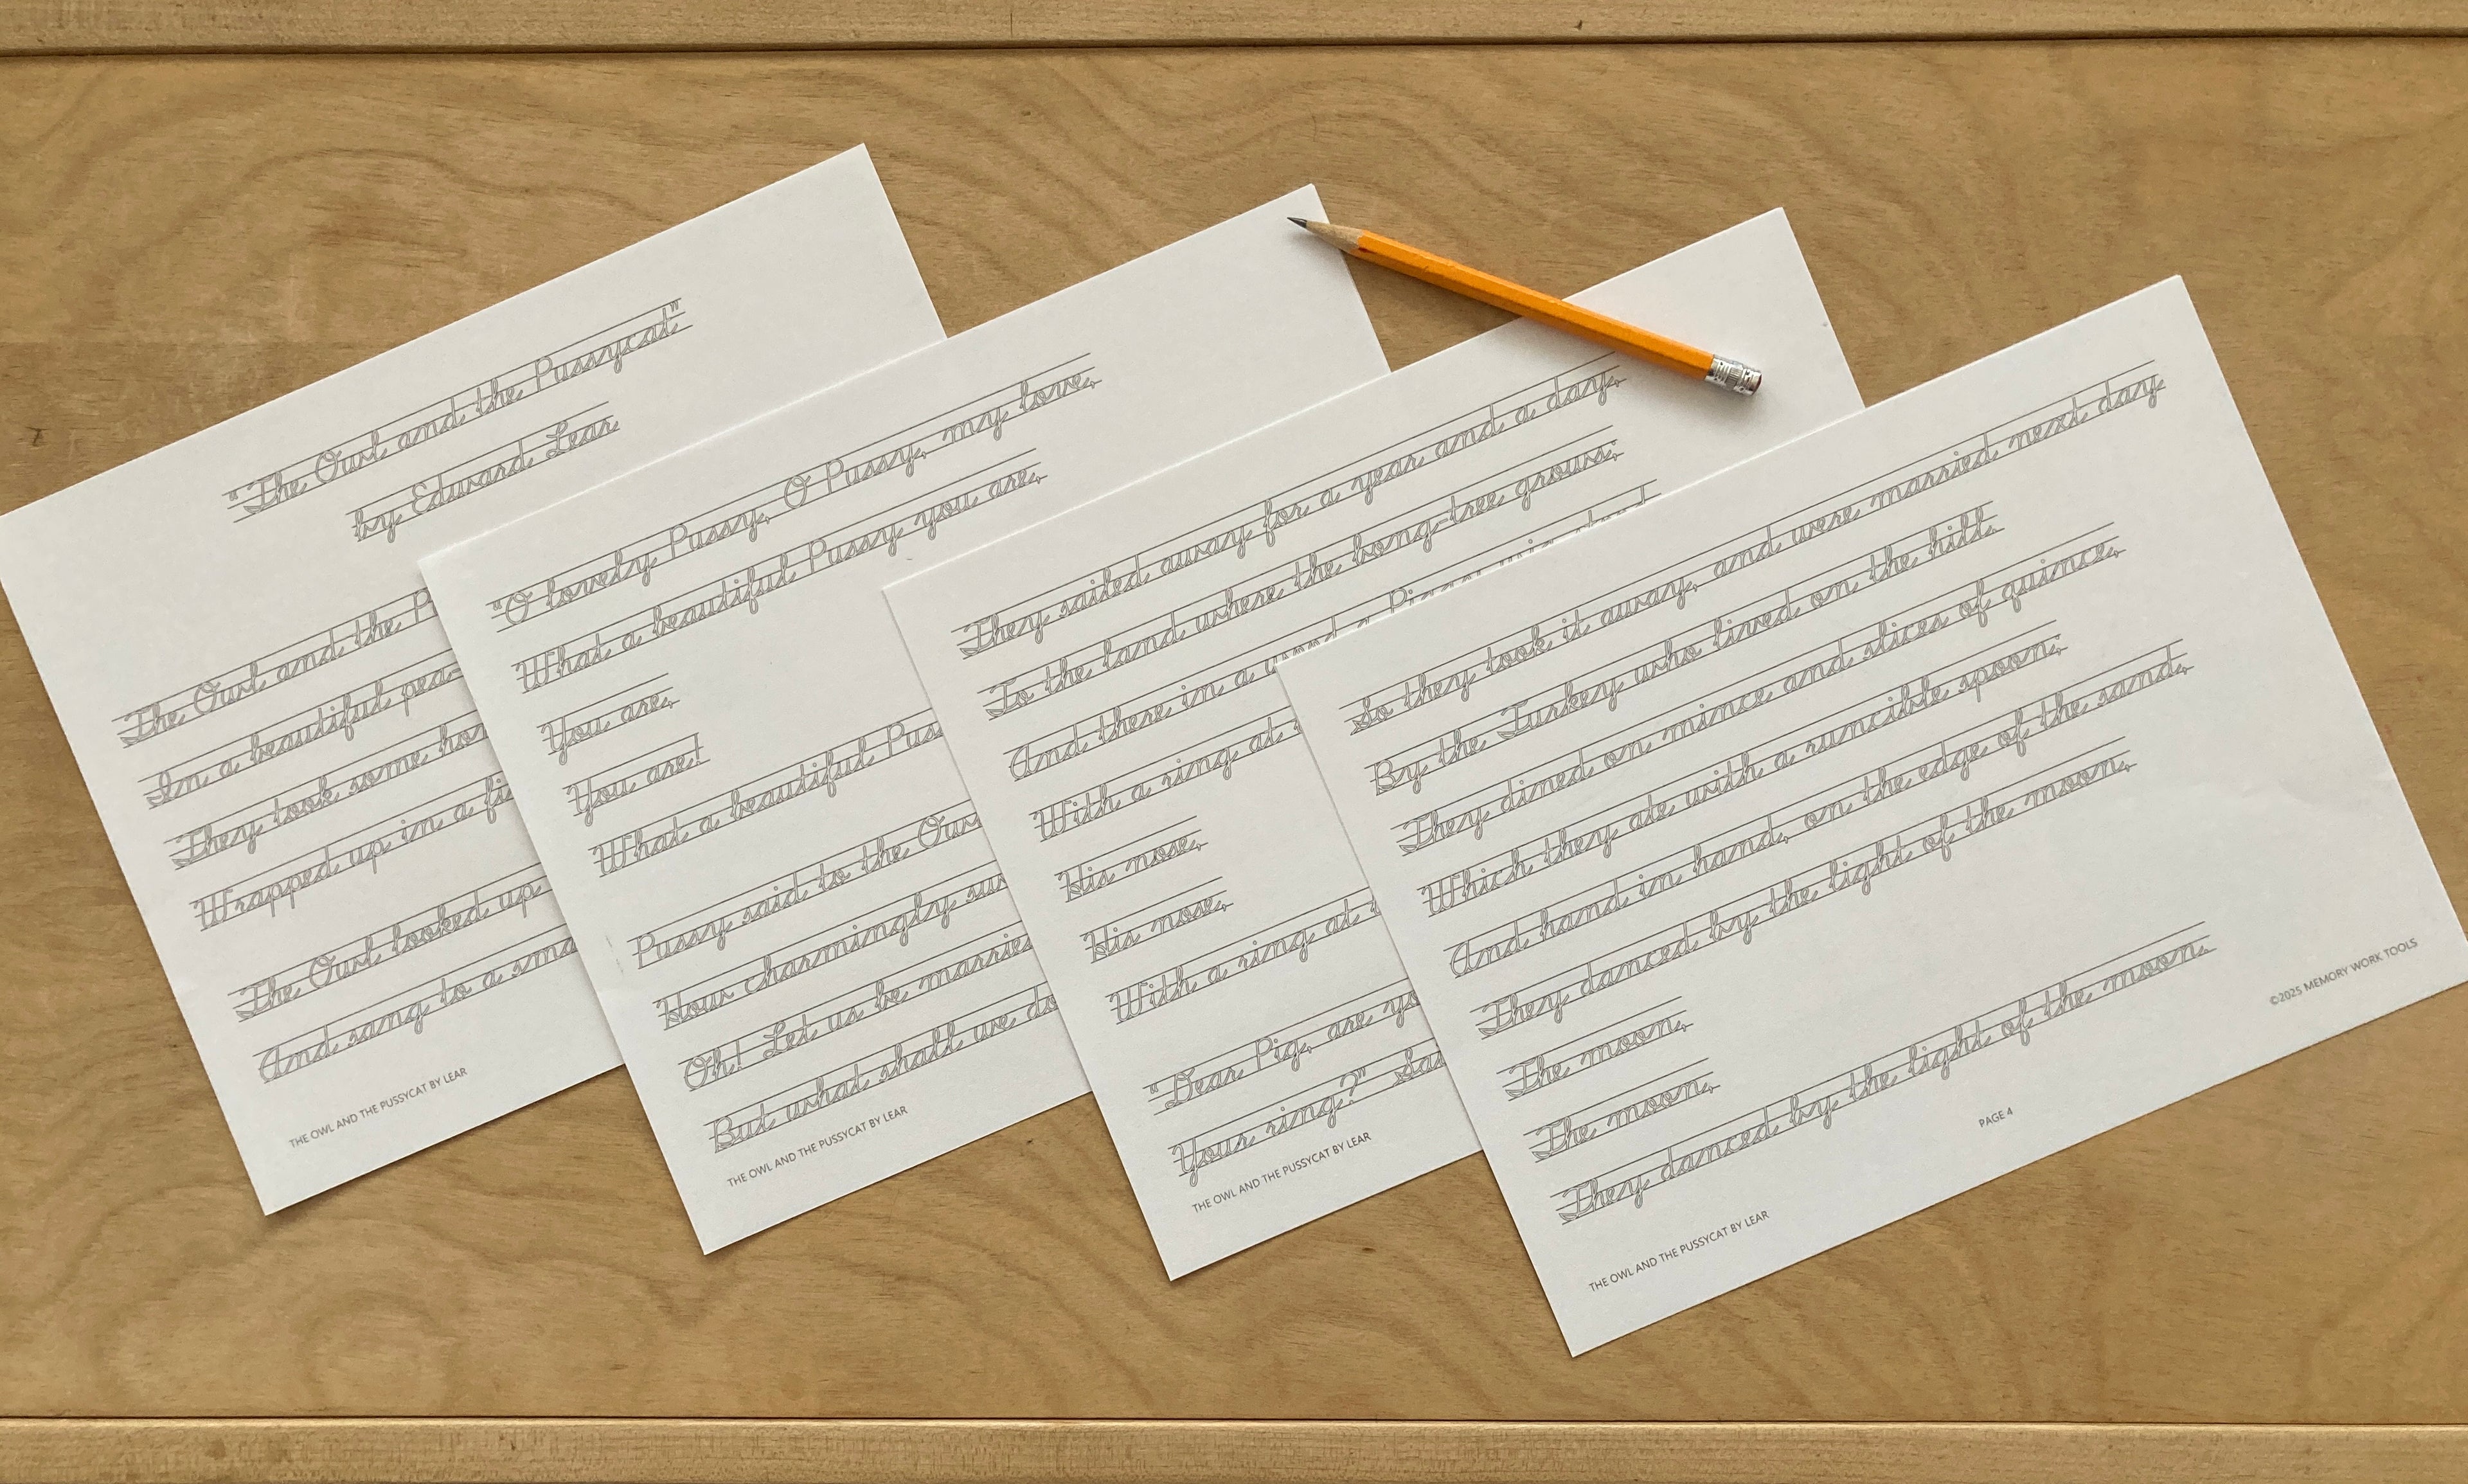 "The Owl and the Pussycat"
by Edward Lear
The Owl and the
In a beautiful pea-
They took some
Wrapped up in a
The Owl looked up
And sang to a
THE OWL AND THE PUSSYCAT BY LEAR
"O lovely Pussy, O Pussy, my love,
What a beautiful Pussy you are,
You are,
You are!
What a beautiful
Pussy said to the
How charmingly
Oh! Let us be
But what shall we
THE OWL AND THE PUSSYCAT BY LEAR
They sailed away for a year and a day,
To the land where the bong-tree grows,
And there in a
With a ring at
His nose,
His nose,
With a ring at
"Dear Pig, are
Your ring?"
THE OWL AND THE PUSSYCAT BY LEAR
So they took it away, and were married next day
By the Turkey who lived on the hill.
They dined on mince and slices of quince,
Which they ate with a runcible spoon,
And hand in hand, on the edge of the sand,
They danced by the light of the moon,
The moon,
The moon,
They danced by the light of the moon.
THE OWL AND THE PUSSYCAT BY LEAR
PAGE 4
©2025 MEMORY WORK TOOLS